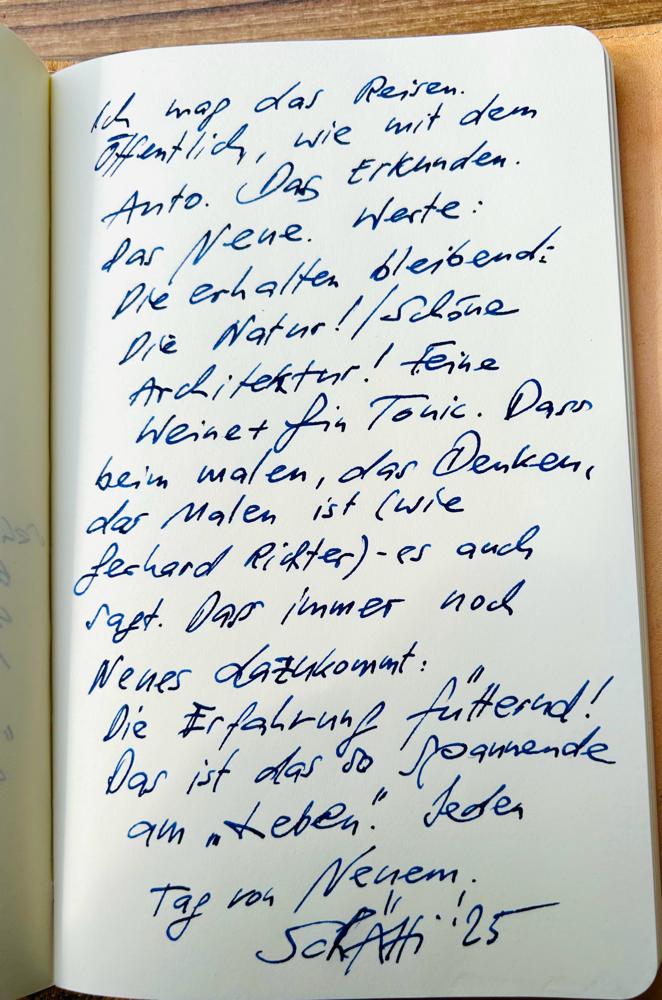 Ich mag das Reisen.
Öffentlich, wie mit dem
Auto. Das Erkunden.
Das Neue. Werte:
Die erhalten bleibend:
Die Natur! / Schöne
Architektur! Feine
Weine + Gin Tonic. Dass
beim malen, das Denken,
das Malen ist (wie
Gerhard Richter) - es auch
sagt. Dass immer noch
Neues dazukommt:
Die Erfahrung fütternd!
Das ist das so Spannende
am „Leben". Jeden
Tag von Neuem.
SCHÄTTi '25